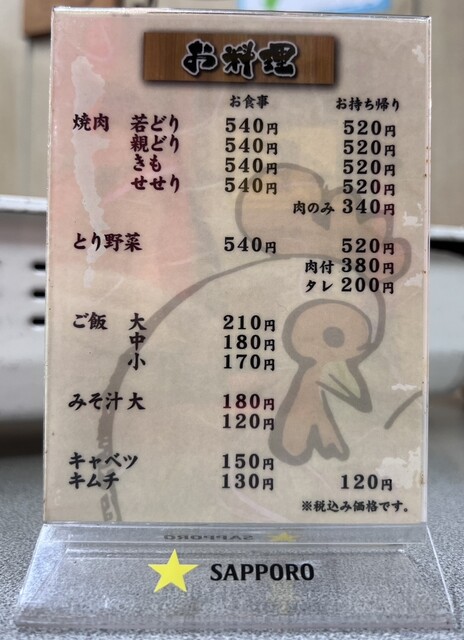 お料理
お食事 お持ち帰り
焼肉 若どり 540円 520円
親どり 540円 520円
きも 540円 520円
せせり 540円 520円
肉のみ 340円
とり野菜 540円 520円
肉付 380円
タレ 200円
ご飯 大 210円
中 180円
小 170円
みそ汁 大 180円
120円
キャベツ 150円
キムチ 130円 120円
※税込み価格です。
SAPPORO
SAPPORO